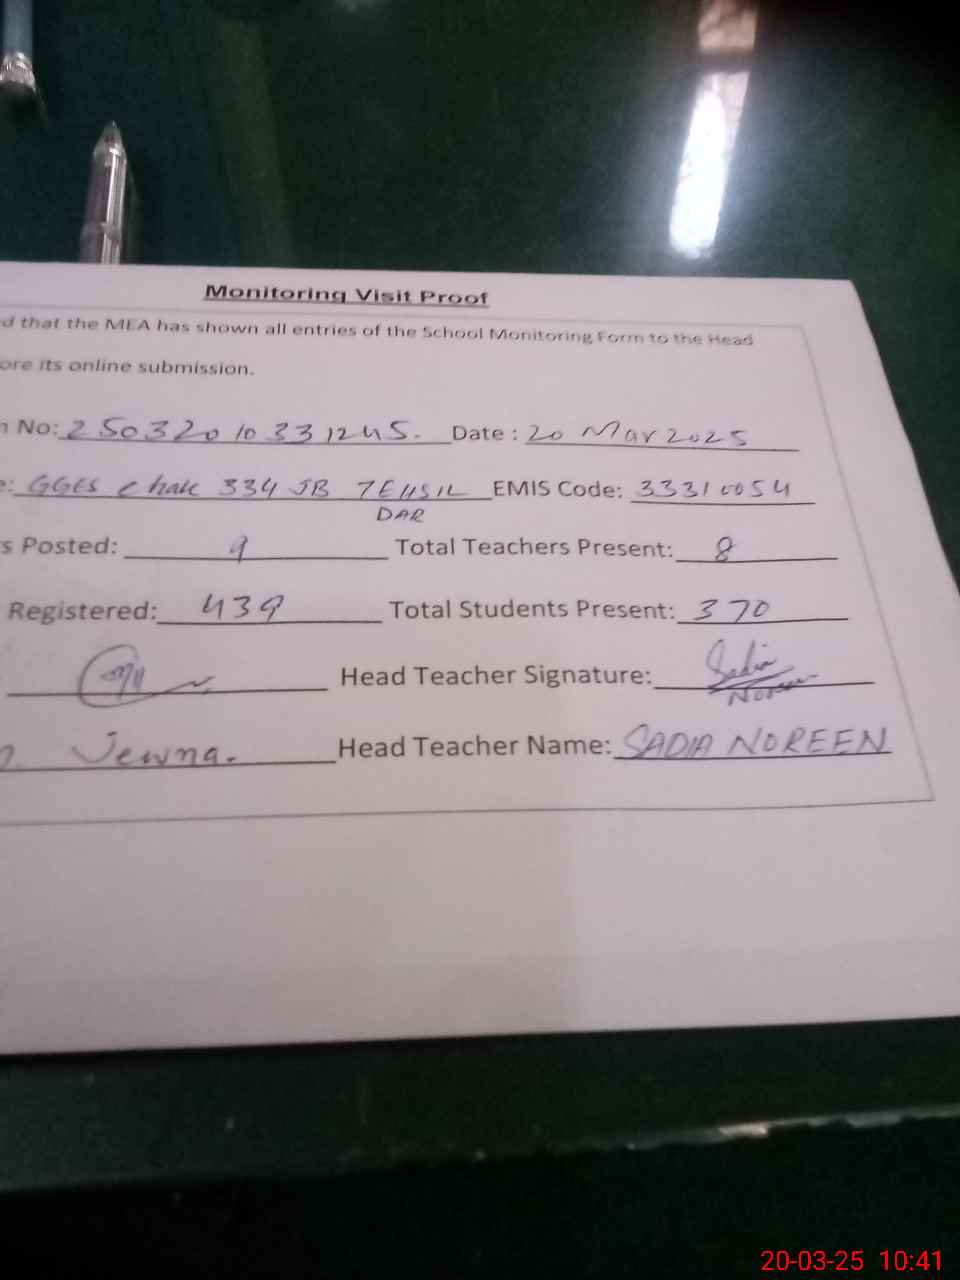 Monitoring Visit Proof
ed that the MEA has shown all entries of the School Monitoring Form to the Head
ore its online submission.
No: 250320 10 331245. Date : 20 Mar 2025
e: GGES Chak 334 JB TEHSIL EMIS Code: 33310054
DAR
s Posted: 9 Total Teachers Present: 8
Registered: 439 Total Students Present: 370
Head Teacher Signature: Sadia
Noreen
Head Teacher Name: SADIA NOREEN
20-03-25 10:41